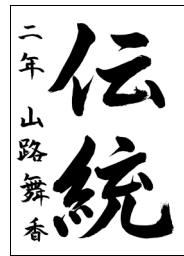 伝統
二年 山路舞香